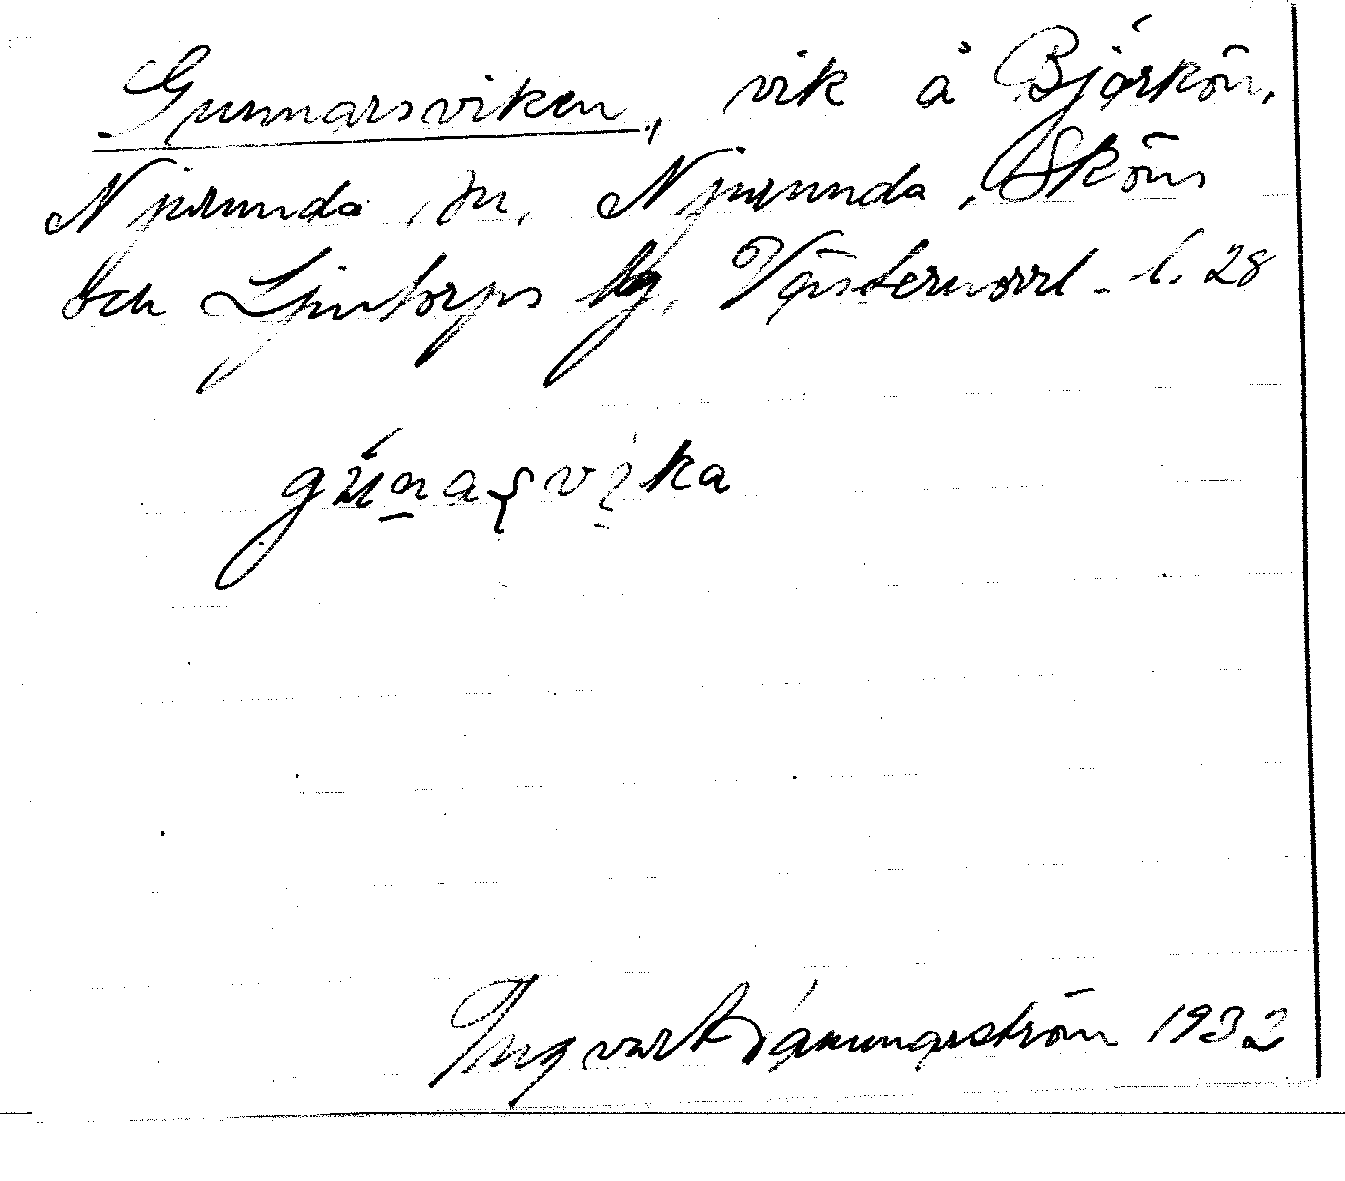 Gunnarsviken, vik å Björkön,
Njurunda sn, Njurunda, Sköns
och Ljustorps tg, Västernorrl. l. 28
gúnaşvika
Ingvar 1932